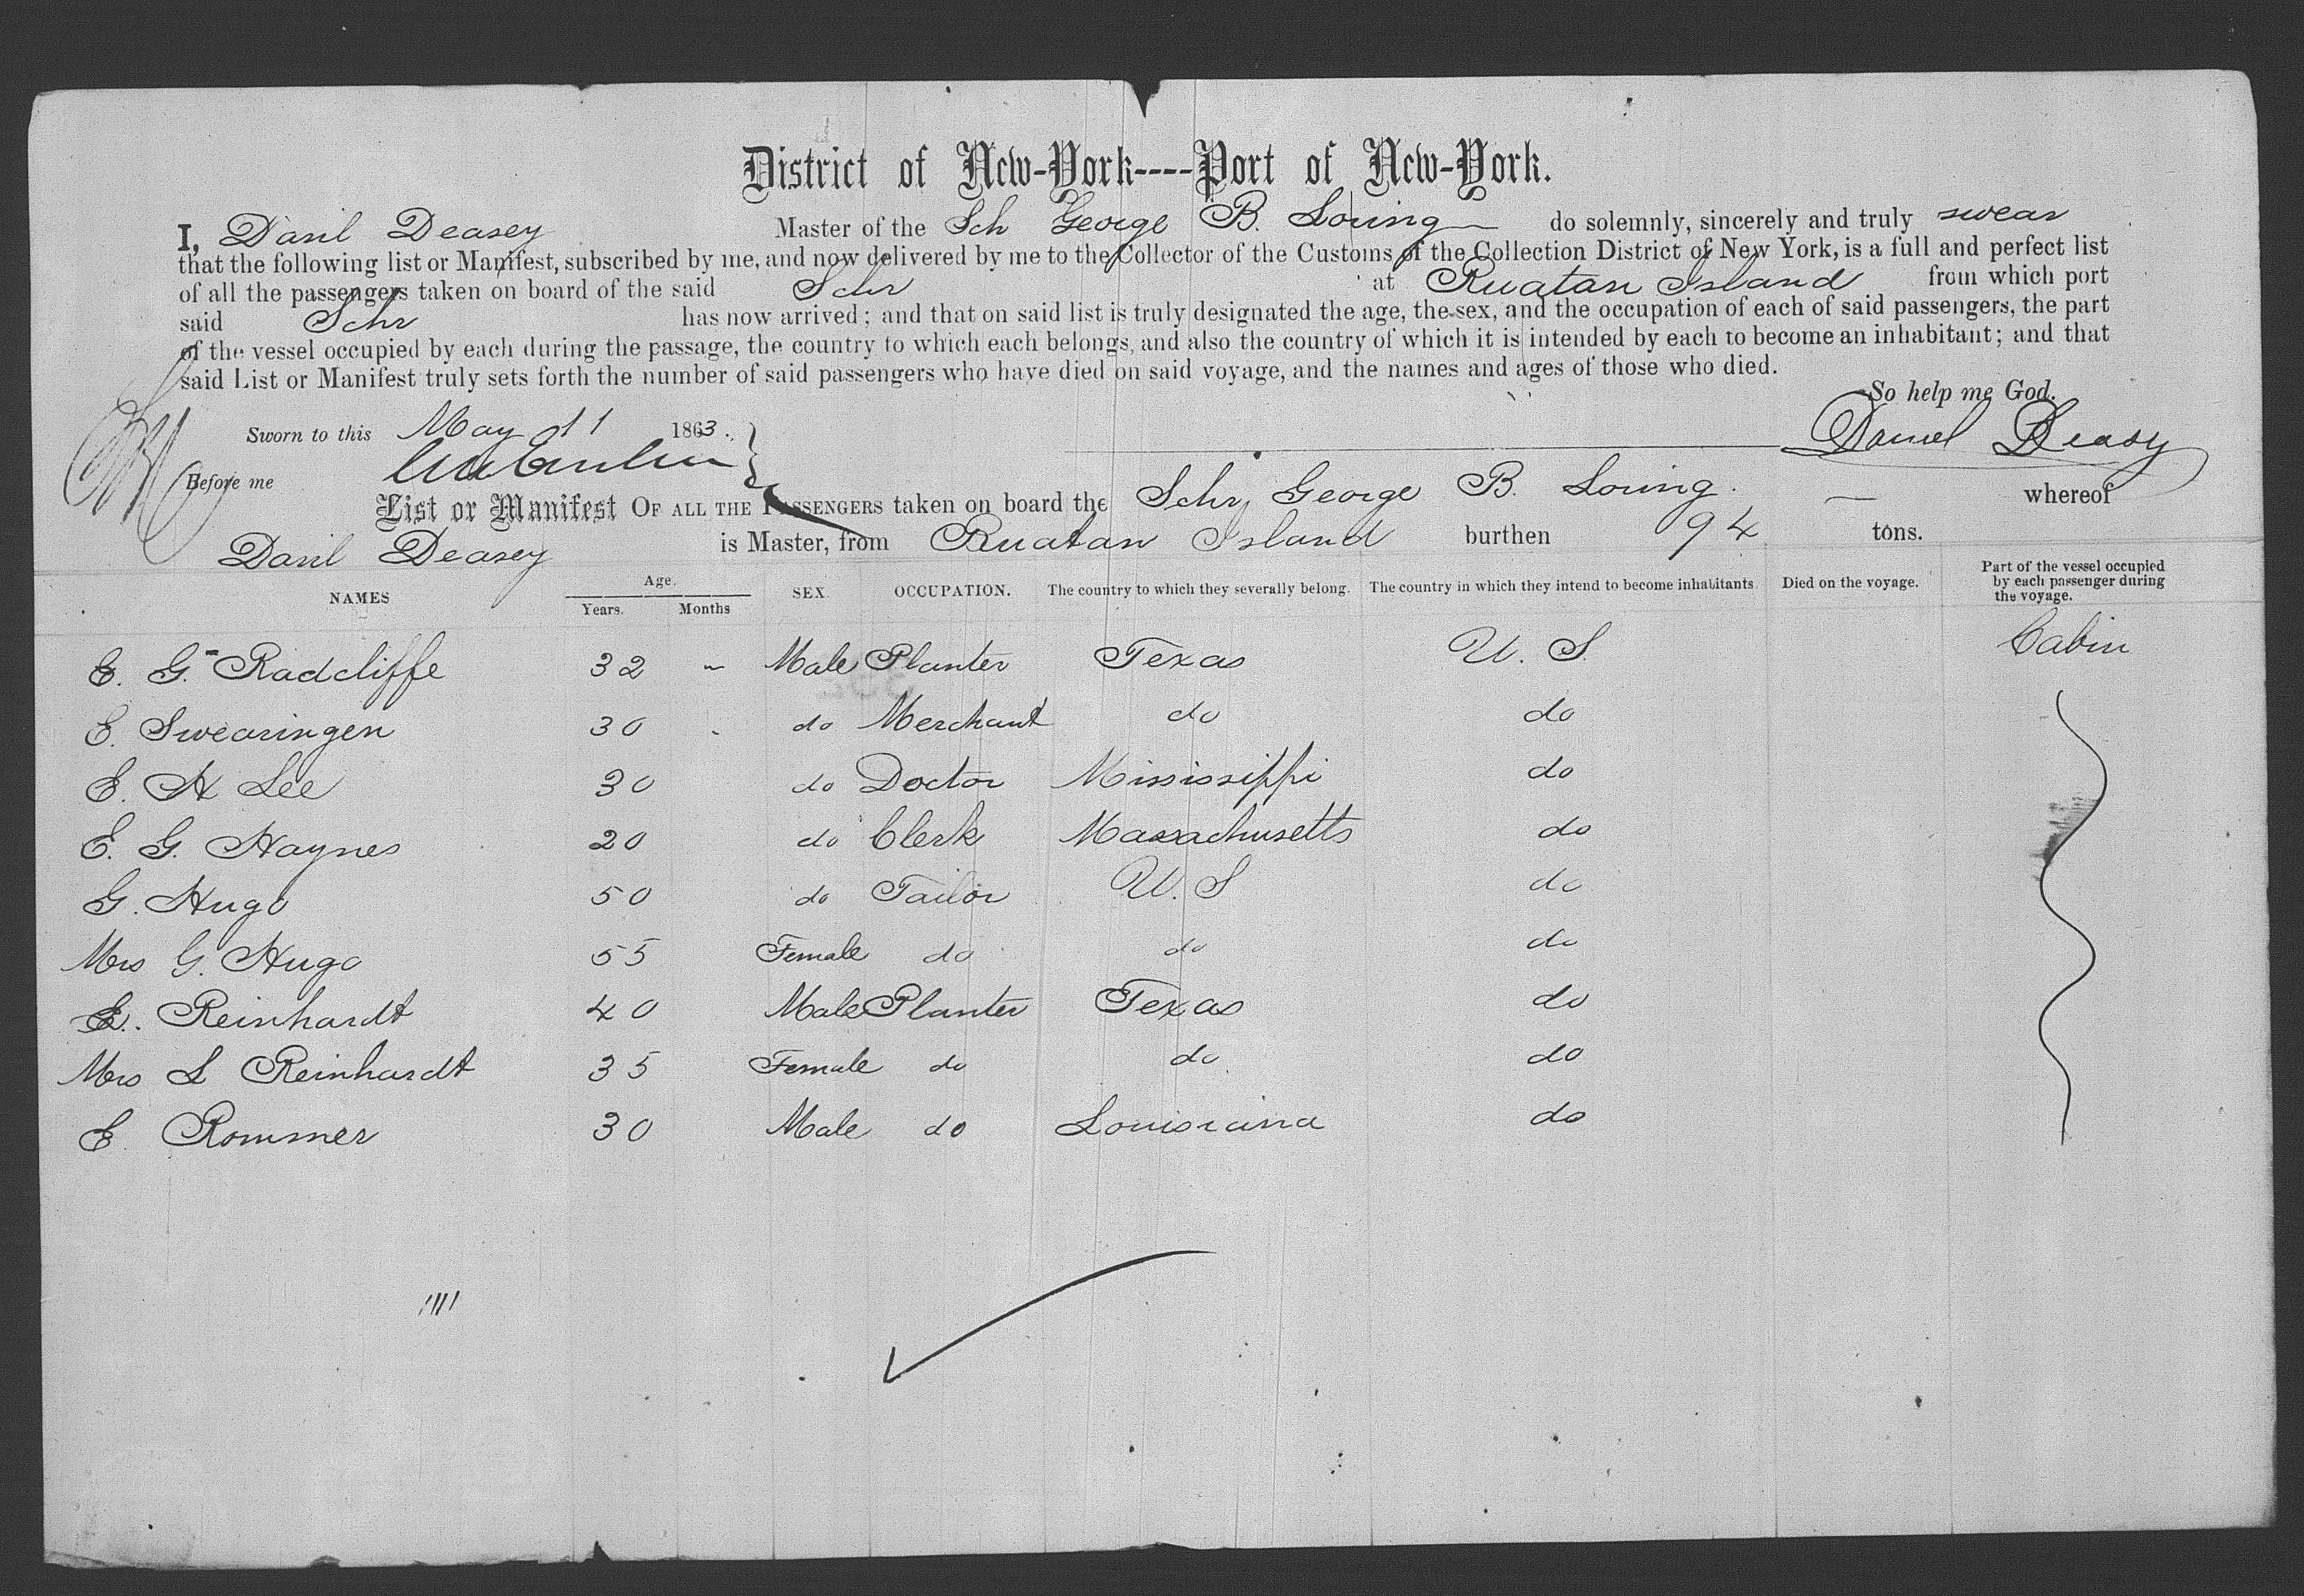 District of New-York----Port of New-York.
I, Danl Deasey Master of the Sch George B. Loring do solemnly, sincerely and truly swear
that the following list or Manifest, subscribed by me, and now delivered by me to the Collector of the Customs of the Collection District of New York, is a full and perfect list
of all the passengers taken on board of the said Schr at Ruatan Island from which port
said Schr has now arrived; and that on said list is truly designated the age, the sex, and the occupation of each of said passengers, the part
of the vessel occupied by each during the passage, the country to which each belongs, and also the country of which it is intended by each to become an inhabitant; and that
said List or Manifest truly sets forth the number of said passengers who have died on said voyage, and the names and ages of those who died.
So help me God.
Sworn to this May 11 1863. Daniel Deasy
Before me
List or Manifest OF ALL THE PASSENGERS taken on board the Schr George B. Loring. whereof
Danl Deasey is Master, from Ruatan Island burthen 94 tons.
NAMES Age. Years. Months SEX OCCUPATION. The country to which they severally belong. The country in which they intend to become inhabitants Died on the voyage. Part of the vessel occupied by each passenger during the voyage.
E. G. Radcliffe 32 Male Planter Texas U. S. Cabin
E. Swearingen 30 do Merchant do do
E. H Lee 30 do Doctor Mississippi do
E. G. Haynes 20 do Clerk Massachusetts do
G. Hugo 50 do Tailor U. S do
Mrs G. Hugo 55 Female do do do
E. Reinhardt 40 Male Planter Texas do
Mrs L Reinhardt 35 Female do do do
E. Rommer 30 Male do Louisiana do